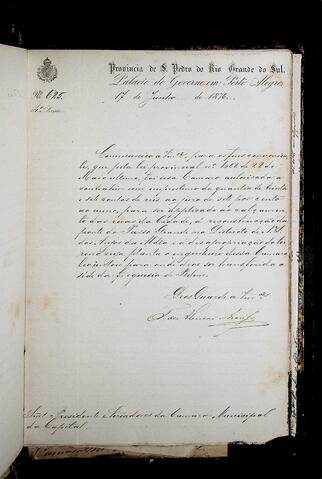 Provincia de S. Pedro do Rio Grande do Sul.
Palacio do Governo em Porto Alegre
17 de Junho de 1876.
Nº 625.
4ª Secção
Communico a Vmcês, para os fins convenientes,
que pela lei provincial nº 1028 de 22 de
Maio ultimo, foi essa Camara autorisada a
contrahir um emprestimo da quantia de trinta
e sete contos de reis ao juro de sete por cento
ao anno, para ser applicado ao calçamento
das ruas da Cidade, á reconstrucção da
ponte do Passo Grande no Districto de N. S.
dos Anjos da Aldea e á desapropriação do terreno
cuja planta o engenheiro dessa Camara
para onde deve ser transferida a
séde da freguesia de Belem.
Deos Guarde a Vmcês
Snrs. Presidente e Vereadores da Camara Municipal
da Capital.